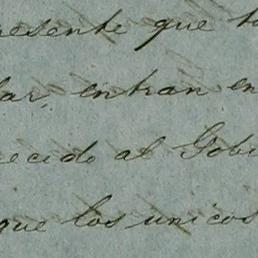 resente que t
lar, entran en
ecido al Gobi
que los unicos